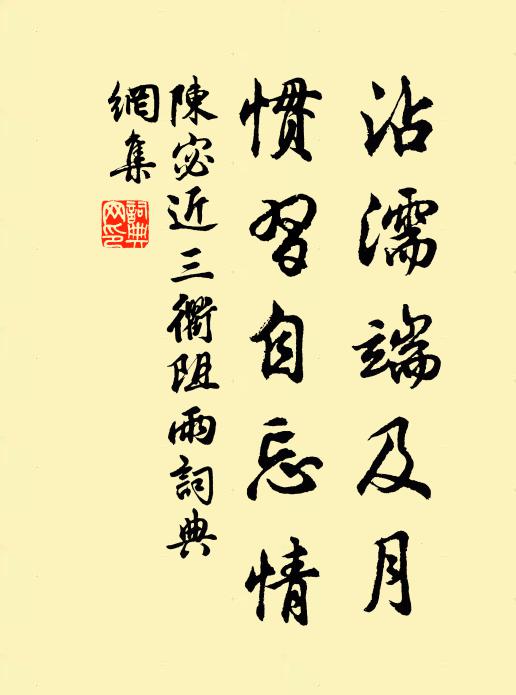 沾濡端及月
慣習自忘情
陳宓近三衢阻雨詞典
網集
詞典
网印